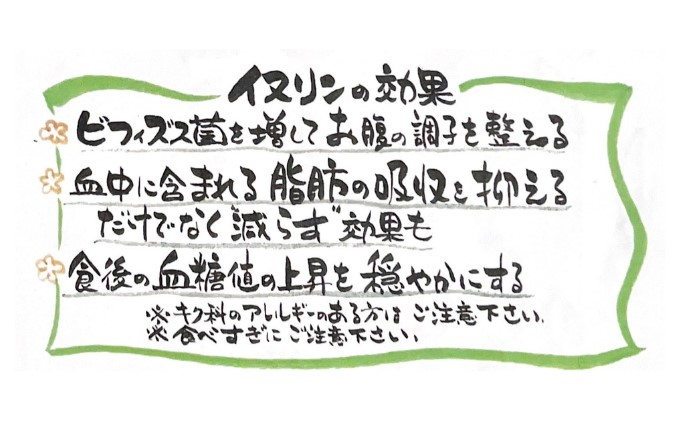 イヌリンの効果
ビフィズス菌を増してお腹の調子を整える
血中に含まれる脂肪の吸収を抑える
だけでなく"減らす"効果も
食後の血糖値の上昇を穏やかにする
※キク科のアレルギーのある方はご注意下さい.
※食べすぎにご注意下さい.